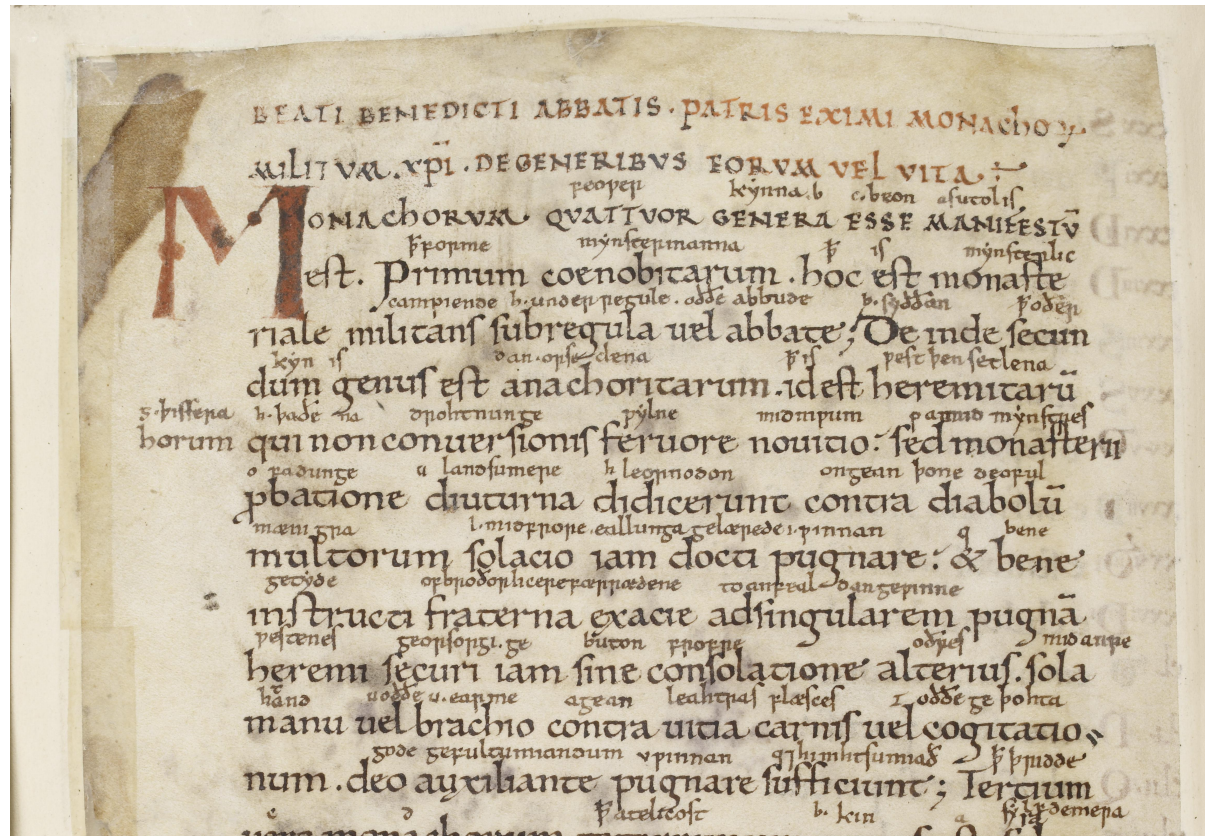 BEATI BENEDICTI ABBATIS · PATRIS EXIMI MONACHOꝝ
MILITUM xp̄i · DE GENERIBUS EORUM VEL VITA
feoper kynna b c beon a sutol is
MONACHORUM QUATTUOR GENERA ESSE MANIFESTŪ
ꝥ forme mynstermanna ꝥ is mynsterlic
est. Primum coenobitarum. hoc est monaste
campiende h. under regule. oððe abbude b. syððan ꝥ oðer
riale militans sub regula vel abbate; De inde secun
kyn is ꝥ is þest þen setlena
dum genus est anachoritarum. id est heremitarū
s. þissera h. þade na drohtnunge pylne mid mynstres
horum qui non conversionis fervore novitio: sed monasterii
o fadunge u landsumere h leornodon ongean þone deoful
ꝓbatione diuturna didicerunt contra diabolū
mænigra eallunga gelærede i. pinnan ⁊ bene
multorum solacio iam docti pugnare: & bene
getyde dan gepinne
instructi fraterna ex acie ad singularem pugnā
pestenes georsorgi. ge buton frofre oðres mid anre
heremi securi iam sine consolatione alterius. sola
hand u oððe u. earme agean leahtras flæsces ꝉ oððe geþohta
manu vel brachio contra vitia carnis vel cogitatio
gode gefultumiandum v pinnan ꝥ þridde
num. deo auxiliante pugnare sufficiunt; Tertium
ꝥ atelicost b. kin